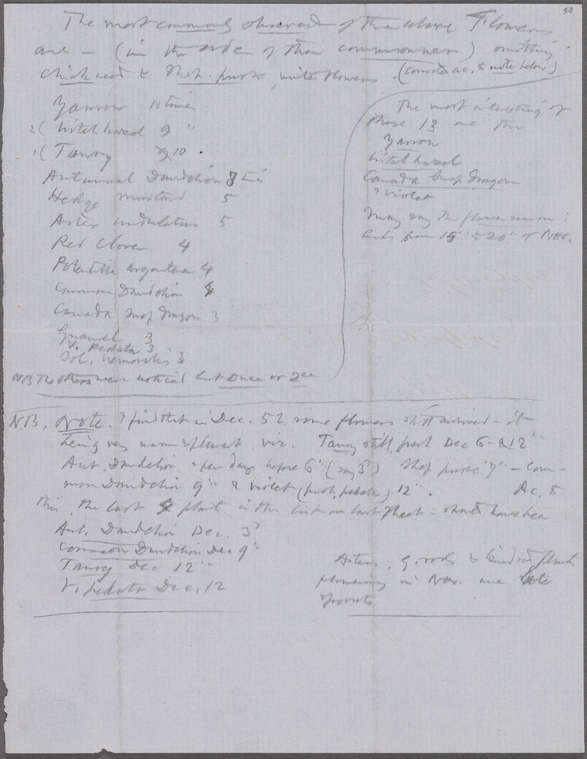 50
The most commonly observed of the above Flowers
are — (in the order of their commonness) omitting
chickweed & Shep. purse, white flowers. (corrected ac. to note below)
Yarrow 10 times
2( Witch hazel 9 "
1( Tansy 10 .
Autumnal Dandelion 8
Hedge mustard 5
Aster undulatus 5
Red Clover 4
Potentilla argentea 4
Common Dandelion 4
Canada Snap dragon 3
Gnawel 3
V. Pedata 3
Sol. nemoralis 3
NB The others were noticed but once or 2ce
The most interesting of
these 13 are the
Yarrow
Witch hazel
Canada Snap dragon
? Violet
may say the flower season
ends from 15th to 20th of Nov.
NB. Note. I find that in Dec. 52 some flowers still survived — it
being very warm & pleasant, viz. Tansy still fresh Dec 6 & 12th
Aut. Dandelion, a few days before 6th (say 3d) Shep purse 7th — com-
mon Dandelion 9th & violet (prob. pedata) 12th. Ac. to
this, the last 4 plants in the list on last sheet — should have been
Aut. Dandelion Dec. 3d
Common Dandelion Dec 9th
Tansy Dec 12th
V. pedata Dec. 12
Asters, golds & kindred plants
flowering in Nov. are late